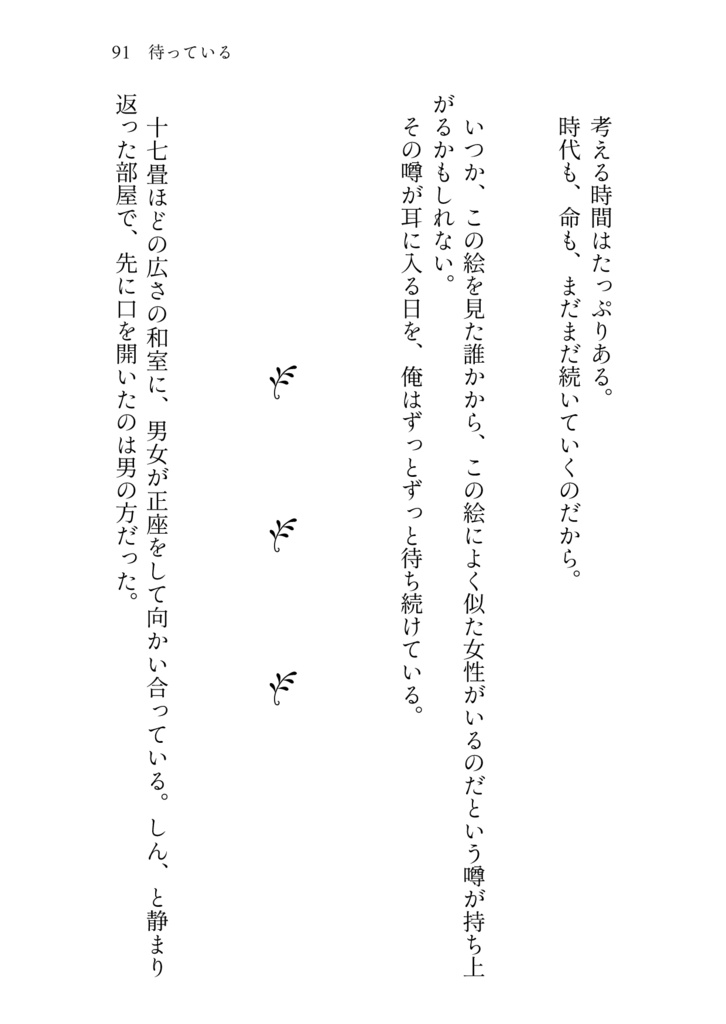 91 待っている
考える時間はたっぷりある。
時代も、命も、まだまだ続いていくのだから。
いつか、この絵を見た誰かから、この絵によく似た女性がいるのだという噂が持ち上
がるかもしれない。
その噂が耳に入る日を、俺はずっとずっと待ち続けている。
十七畳ほどの広さの和室に、男女が正座をして向かい合っている。しん、と静まり
返った部屋で、先に口を開いたのは男の方だった。